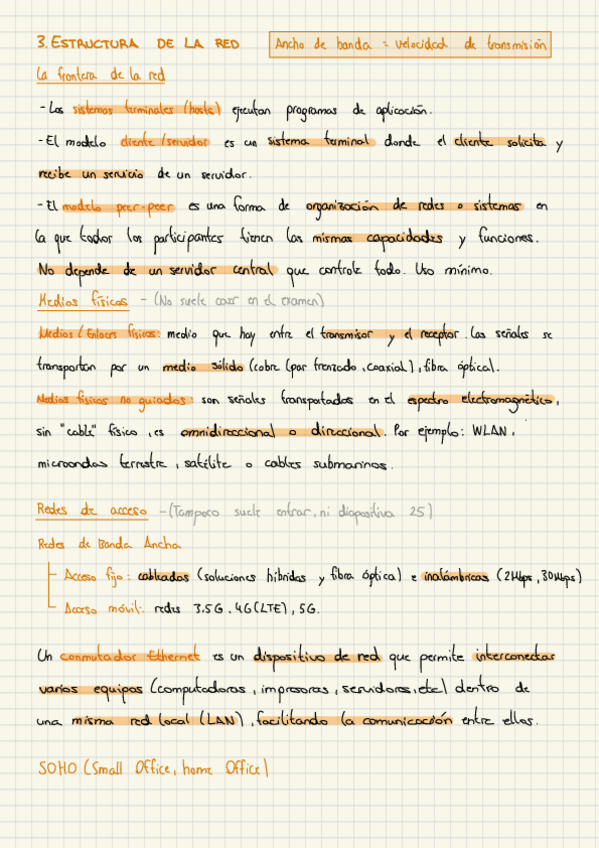 3. ESTRUCTURA DE LA RED
Ancho de banda = velocidad de transmisión
La frontera de la red
- Los sistemas terminales (hosts) ejecutan programas de aplicación.
- El modelo cliente/servidor es un sistema terminal donde el cliente solicita y
recibe un servicio de un servidor.
- El modelo peer-peer es una forma de organización de redes o sistemas en
la que todos los participantes tienen las mismas capacidades y funciones.
No depende de un servidor central que controle todo. Uso mínimo.
Medios físicos - (No suele caer en el examen)
Medios / Enlaces físicos: medio que hay entre el transmisor y el receptor. Las señales se
transportan por un medio sólido (cobre (par trenzado, coaxial), fibra óptica).
Medios físicos no guiados: son señales transportadas en el espectro electromagnético,
sin "cable" físico, es omnidireccional o direccional. Por ejemplo: WLAN,
microondas terrestre, satélite o cables submarinos.
Redes de acceso - (Tampoco suele entrar, ni diapositiva 25)
Redes de Banda Ancha
Acceso fijo: cableados (soluciones híbridas y fibra óptica) e inalámbricas (2Mbps, 30Mbps)
Acceso móvil: redes 3.5G, 4G (LTE), 5G.
Un conmutador Ethernet es un dispositivo de red que permite interconectar
varios equipos (computadoras, impresoras, servidores, etc) dentro de
una misma red local (LAN), facilitando la comunicación entre ellos.
SOHO (Small Office, home Office)